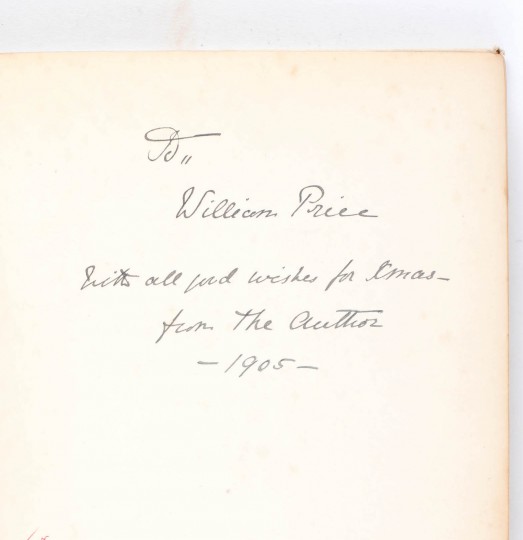 To,,
William Price
With all good wishes for Xmas—
from the Author
—1905—